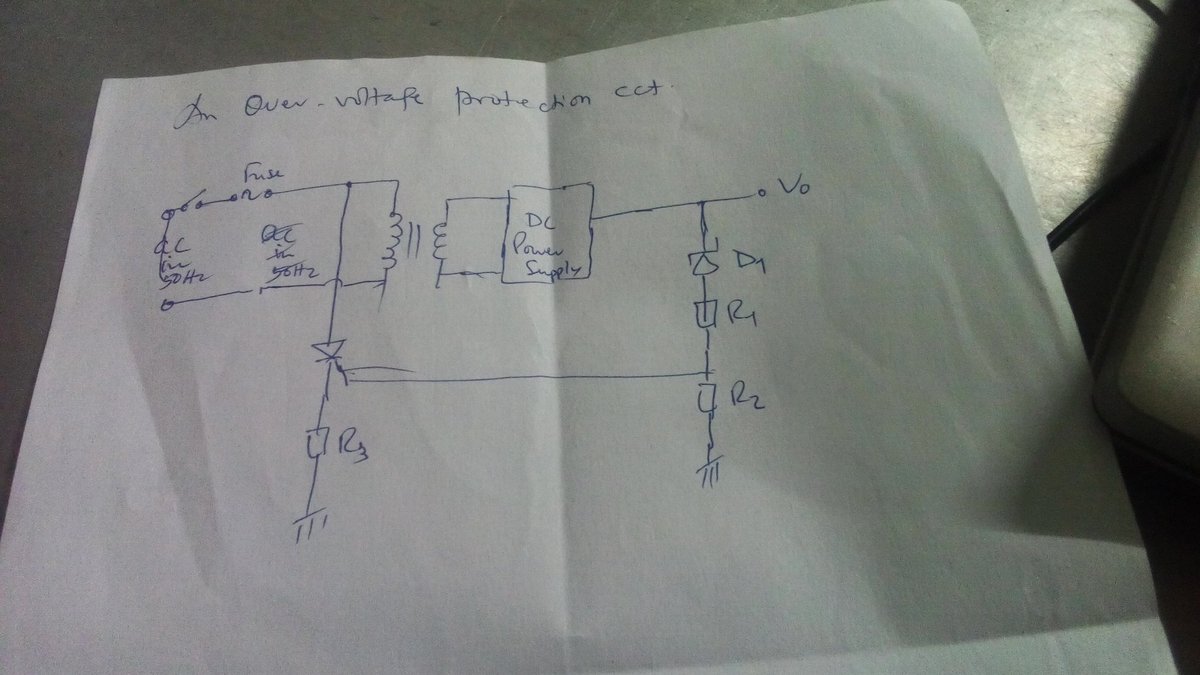 An Over-voltage protection cct.
Fuse
AC
in
50Hz
in
50Hz
DC
Power
Supply
Vo
D1
R1
R2
R3